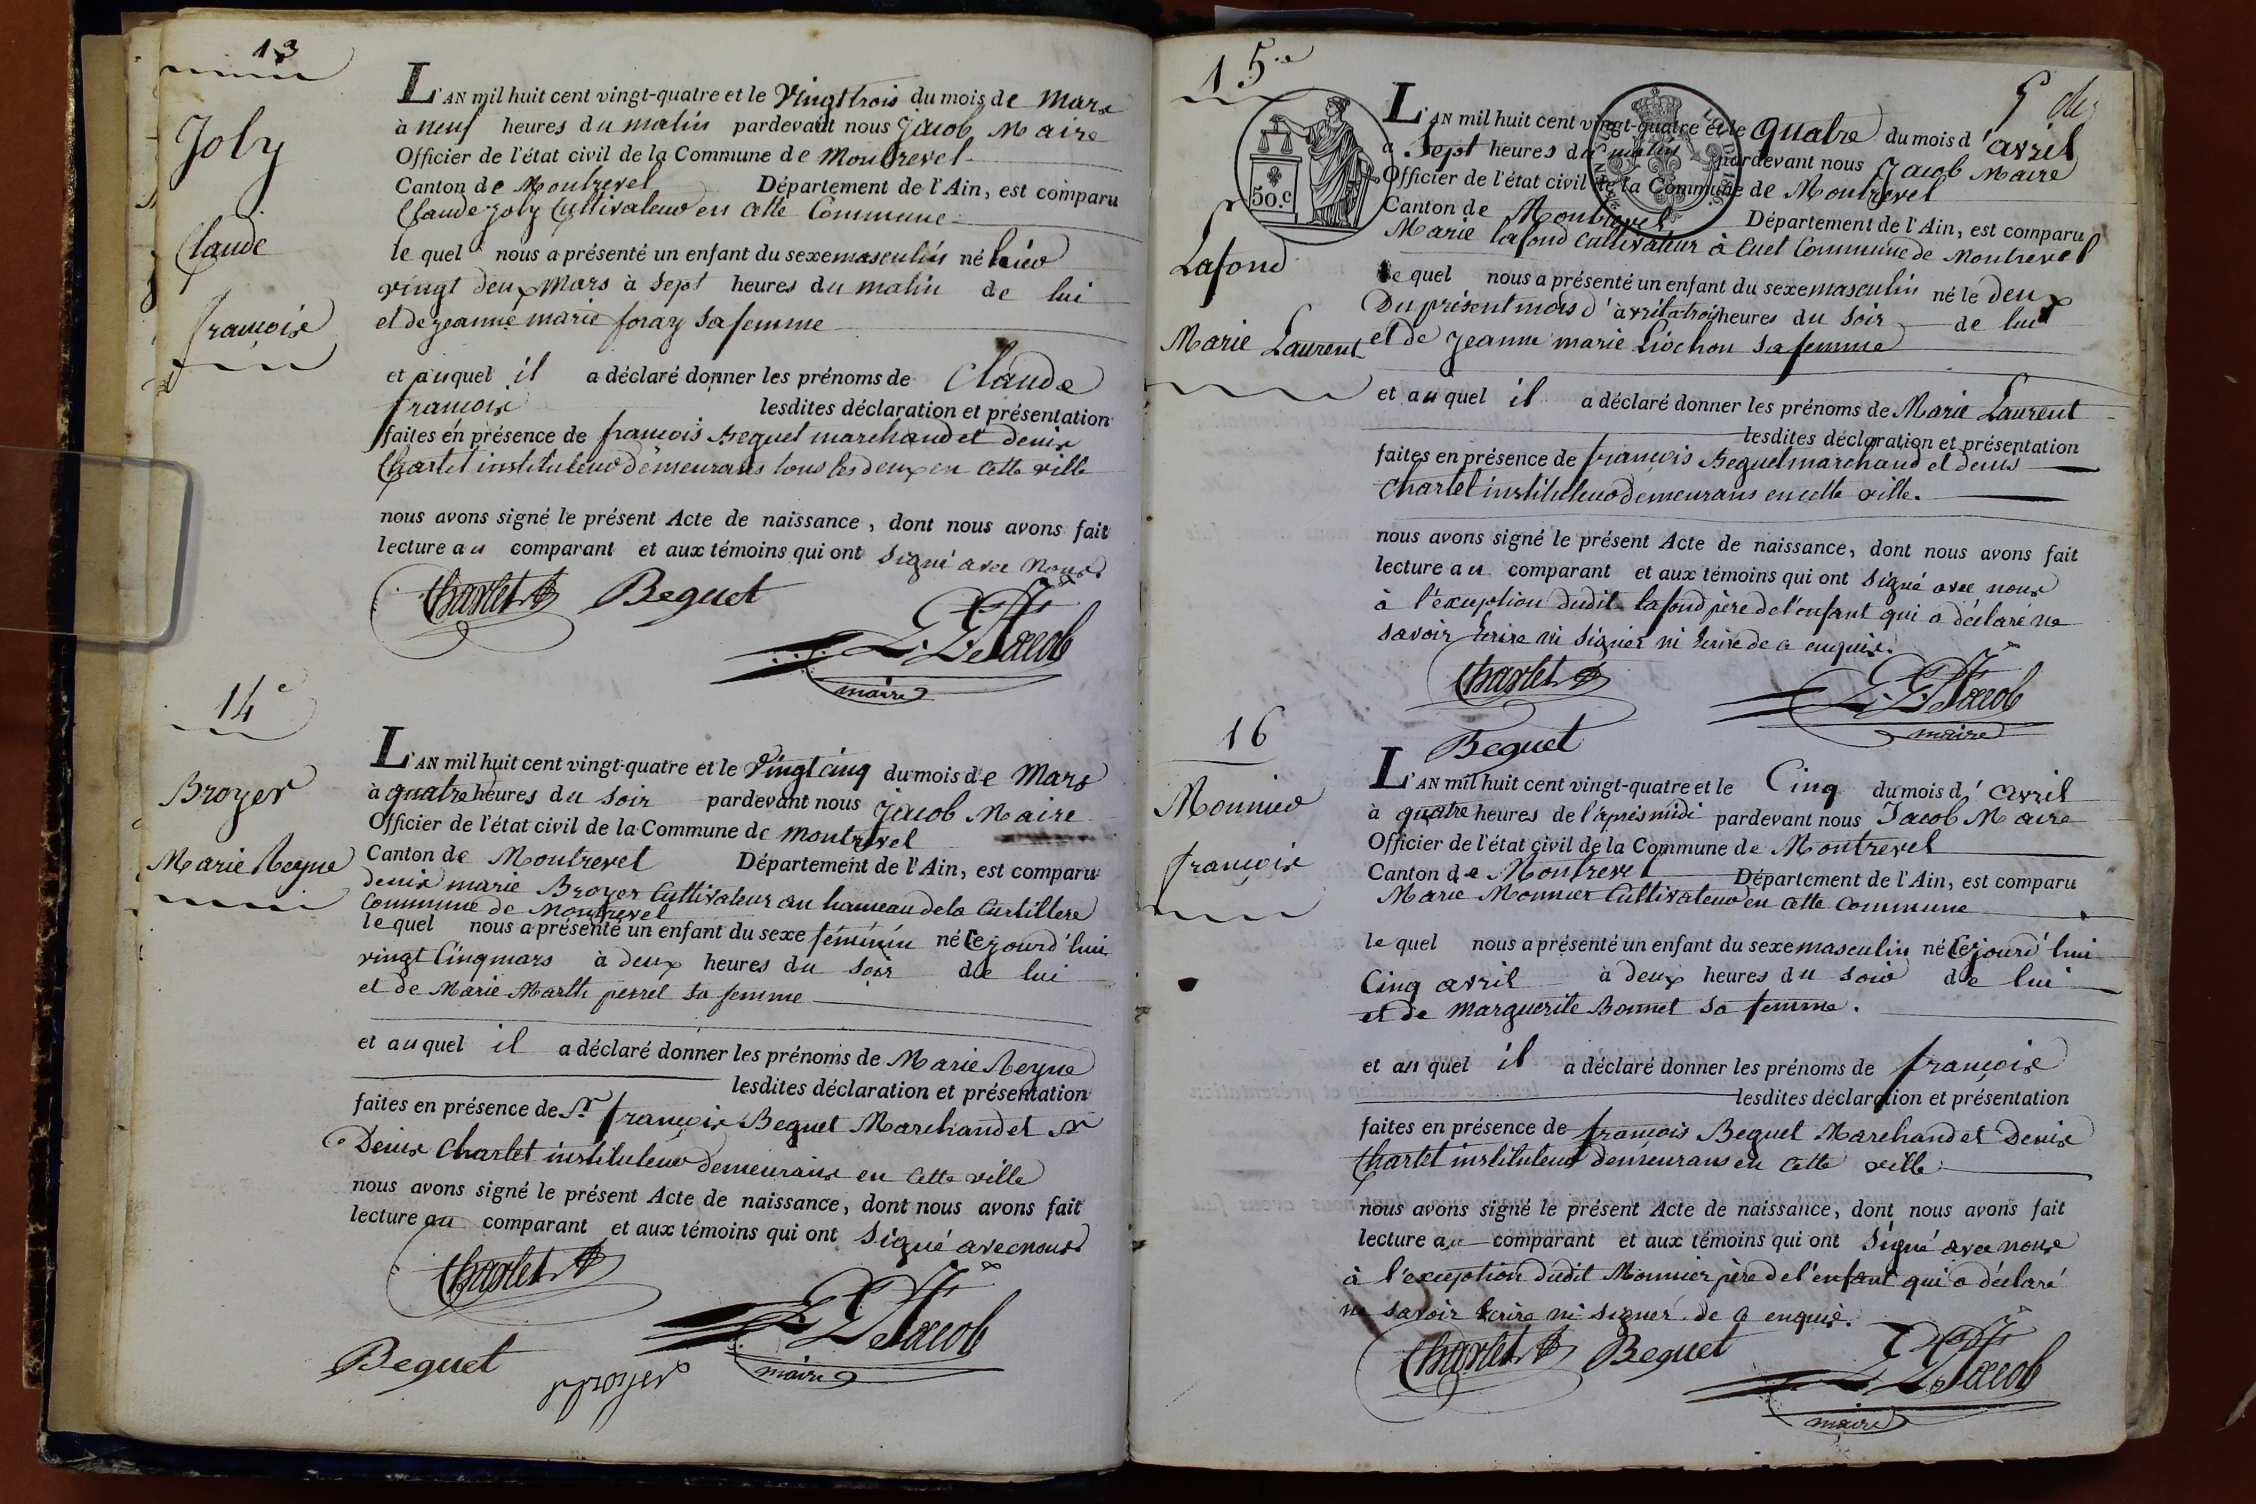 13
Joly
Claude
françois
L'AN mil huit cent vingt-quatre et le Vingt trois du mois de Mars
à neuf heures du matin pardevant nous Jacob Maire
Officier de l'état civil de la Commune de Montrevel
Canton de Montrevel Département de l'Ain, est comparu
Claude Joly Cultivateur en cette Commune
le quel nous a présenté un enfant du sexe masculin né hier
vingt deux Mars à Sept heures du matin de lui
et de jeanne marie foray sa femme
et auquel il a déclaré donner les prénoms de Claude
françois lesdites déclaration et présentation
faites en présence de françois Beguet marchand et denis
Charlet instituteur demeurans tous les deux en cette ville
nous avons signé le présent Acte de naissance, dont nous avons fait
lecture au comparant et aux témoins qui ont signé avec nous.
Charlet Beguet
Jacob
maire
14e
Broyer
Marie Reyne
L'AN mil huit cent vingt-quatre et le Vingt cinq du mois de Mars
à quatre heures du soir pardevant nous Jacob Maire
Officier de l'état civil de la Commune de Montrevel
Canton de Montrevel Département de l'Ain, est comparu
denis marie Broyer Cultivateur au hameau de la Curtillere
Commune de Montrevel
le quel nous a présenté un enfant du sexe féminin né Cejourd'hui
vingt Cinq mars à deux heures du soir de lui
et de Marie Marthe perret sa femme
et auquel il a déclaré donner les prénoms de Marie Reyne
lesdites déclaration et présentation
faites en présence de Sr françois Beguet Marchand et Sr
Denis Charlet instituteur demeurans en cette ville
nous avons signé le présent Acte de naissance, dont nous avons fait
lecture au comparant et aux témoins qui ont Signé avec nous
Charlet
Jacob
maire
Beguet
Broyer
15e
50.c
Lafond
Marie Laurent
L'AN mil huit cent vingt-quatre et le quatre du mois d'avril
a Sept heures du matin pardevant nous Jacob Maire
Officier de l'état civil de la Commune de Montrevel
Canton de Montrevel Département de l'Ain, est comparu
Marie lafond Cultivateur à Cuet Commune de Montrevel
le quel nous a présenté un enfant du sexe masculin né le deux
Du présent mois d'avril a trois heures du soir de lui
et de jeanne marie Liochon sa femme
et auquel il a déclaré donner les prénoms de Marie Laurent
lesdites déclaration et présentation
faites en présence de françois Beguet marchand et denis
Charlet instituteur demeurans en cette ville.
nous avons signé le présent Acte de naissance, dont nous avons fait
lecture au comparant et aux témoins qui ont Signé avec nous
à l'exception dudit lafond père de l'enfant qui a déclaré ne
savoir Ecrire ni signer ni Ecrire de ce enquis.
Charlet
Jacob
maire
Beguet
16
Monnier
françois
L'AN mil huit cent vingt-quatre et le Cinq du mois d'avril
à quatre heures de l'après midi pardevant nous Jacob Maire
Officier de l'état civil de la Commune de Montrevel
Canton de Montrevel Département de l'Ain, est comparu
Marie Monnier Cultivateur en cette Commune
le quel nous a présenté un enfant du sexe masculin né Cejourd'hui
Cinq avril à deux heures du soir de lui
et de Marguerite Bonnet sa femme.
et auquel il a déclaré donner les prénoms de françois
lesdites déclaration et présentation
faites en présence de françois Beguet Marchand et Denis
Charlet instituteur demeurans en cette ville
nous avons signé le présent Acte de naissance, dont nous avons fait
lecture au comparant et aux témoins qui ont Signé avec nous
à l'exception dudit Monnier père de l'enfant qui a déclaré
ne savoir Ecrire ni signer de ce enquis.
Charlet Beguet
Jacob
maire